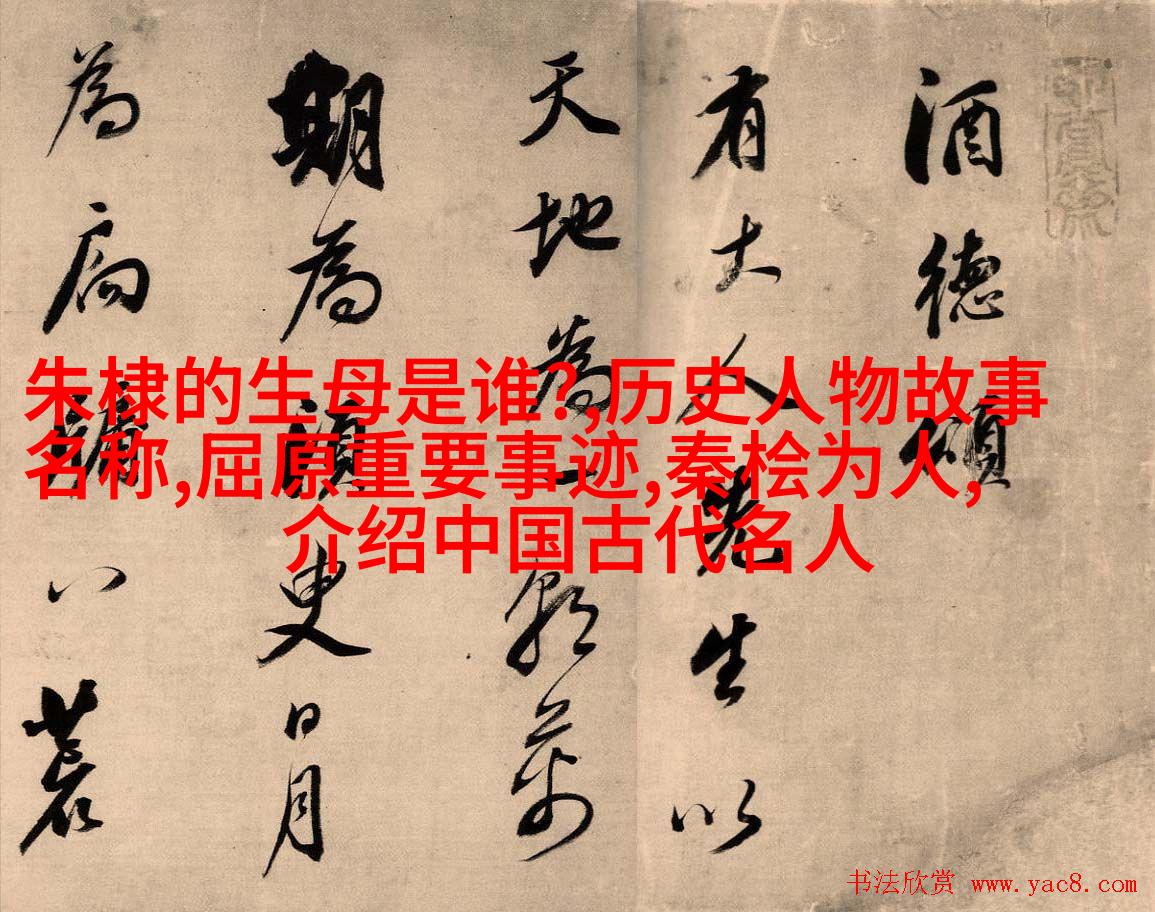 酒德頌
有大人先生以
天地為一朝萬
期為須臾日月
為扃牖八荒
朱棣的生母是谁?,历史人物故事
名称,屈原重要事迹,秦桧为人,
介绍中国古代名人
书法欣赏 www.yac8.com